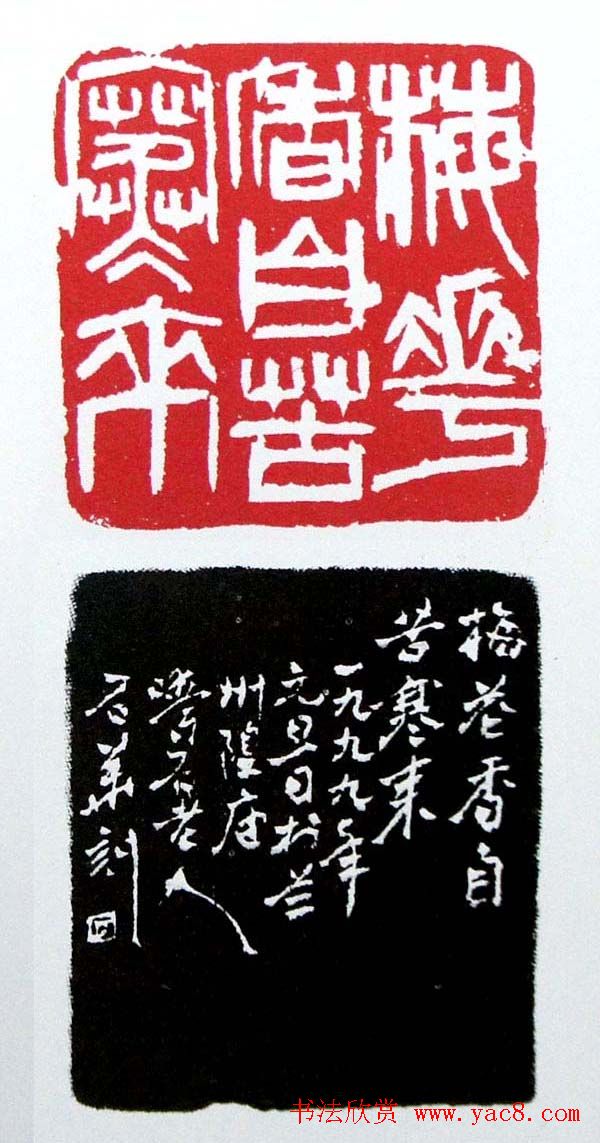 梅花
香自苦
寒来
梅花香自
苦寒来
一九九九年
元旦日於兰
州隍庙
石老人
刻
书法欣赏 www.yac8.com